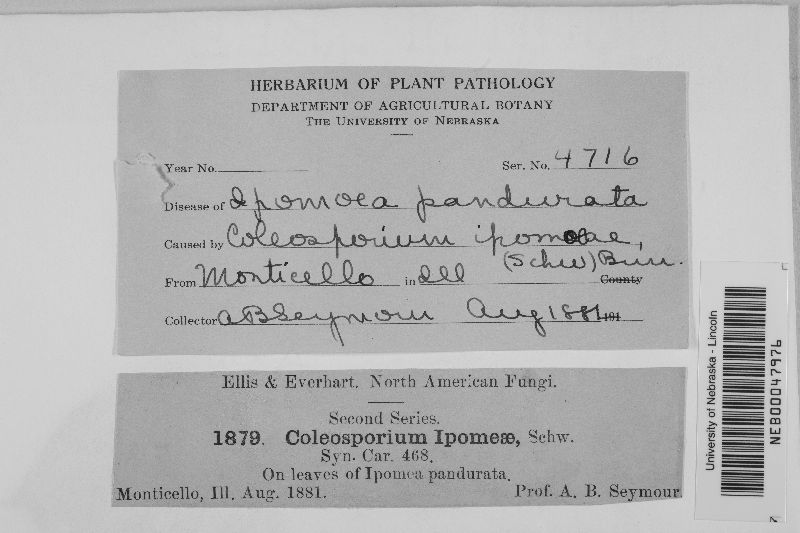 HERBARIUM OF PLANT PATHOLOGY
DEPARTMENT OF AGRICULTURAL BOTANY
THE UNIVERSITY OF NEBRASKA
Year No. Ser. No. 4716
Disease of Ipomoea pandurata
Caused by Coleosporium ipomoeae,
(Schw) Burr.
From Monticello in Ill County
Collector A B Seymour Aug 1881 191
Ellis & Everhart. North American Fungi.
Second Series.
1879. Coleosporium Ipomeæ, Schw.
Syn. Car. 468.
On leaves of Ipomea pandurata.
Monticello, Ill. Aug. 1881. Prof. A. B. Seymour.
University of Nebraska - Lincoln
NEB00047976